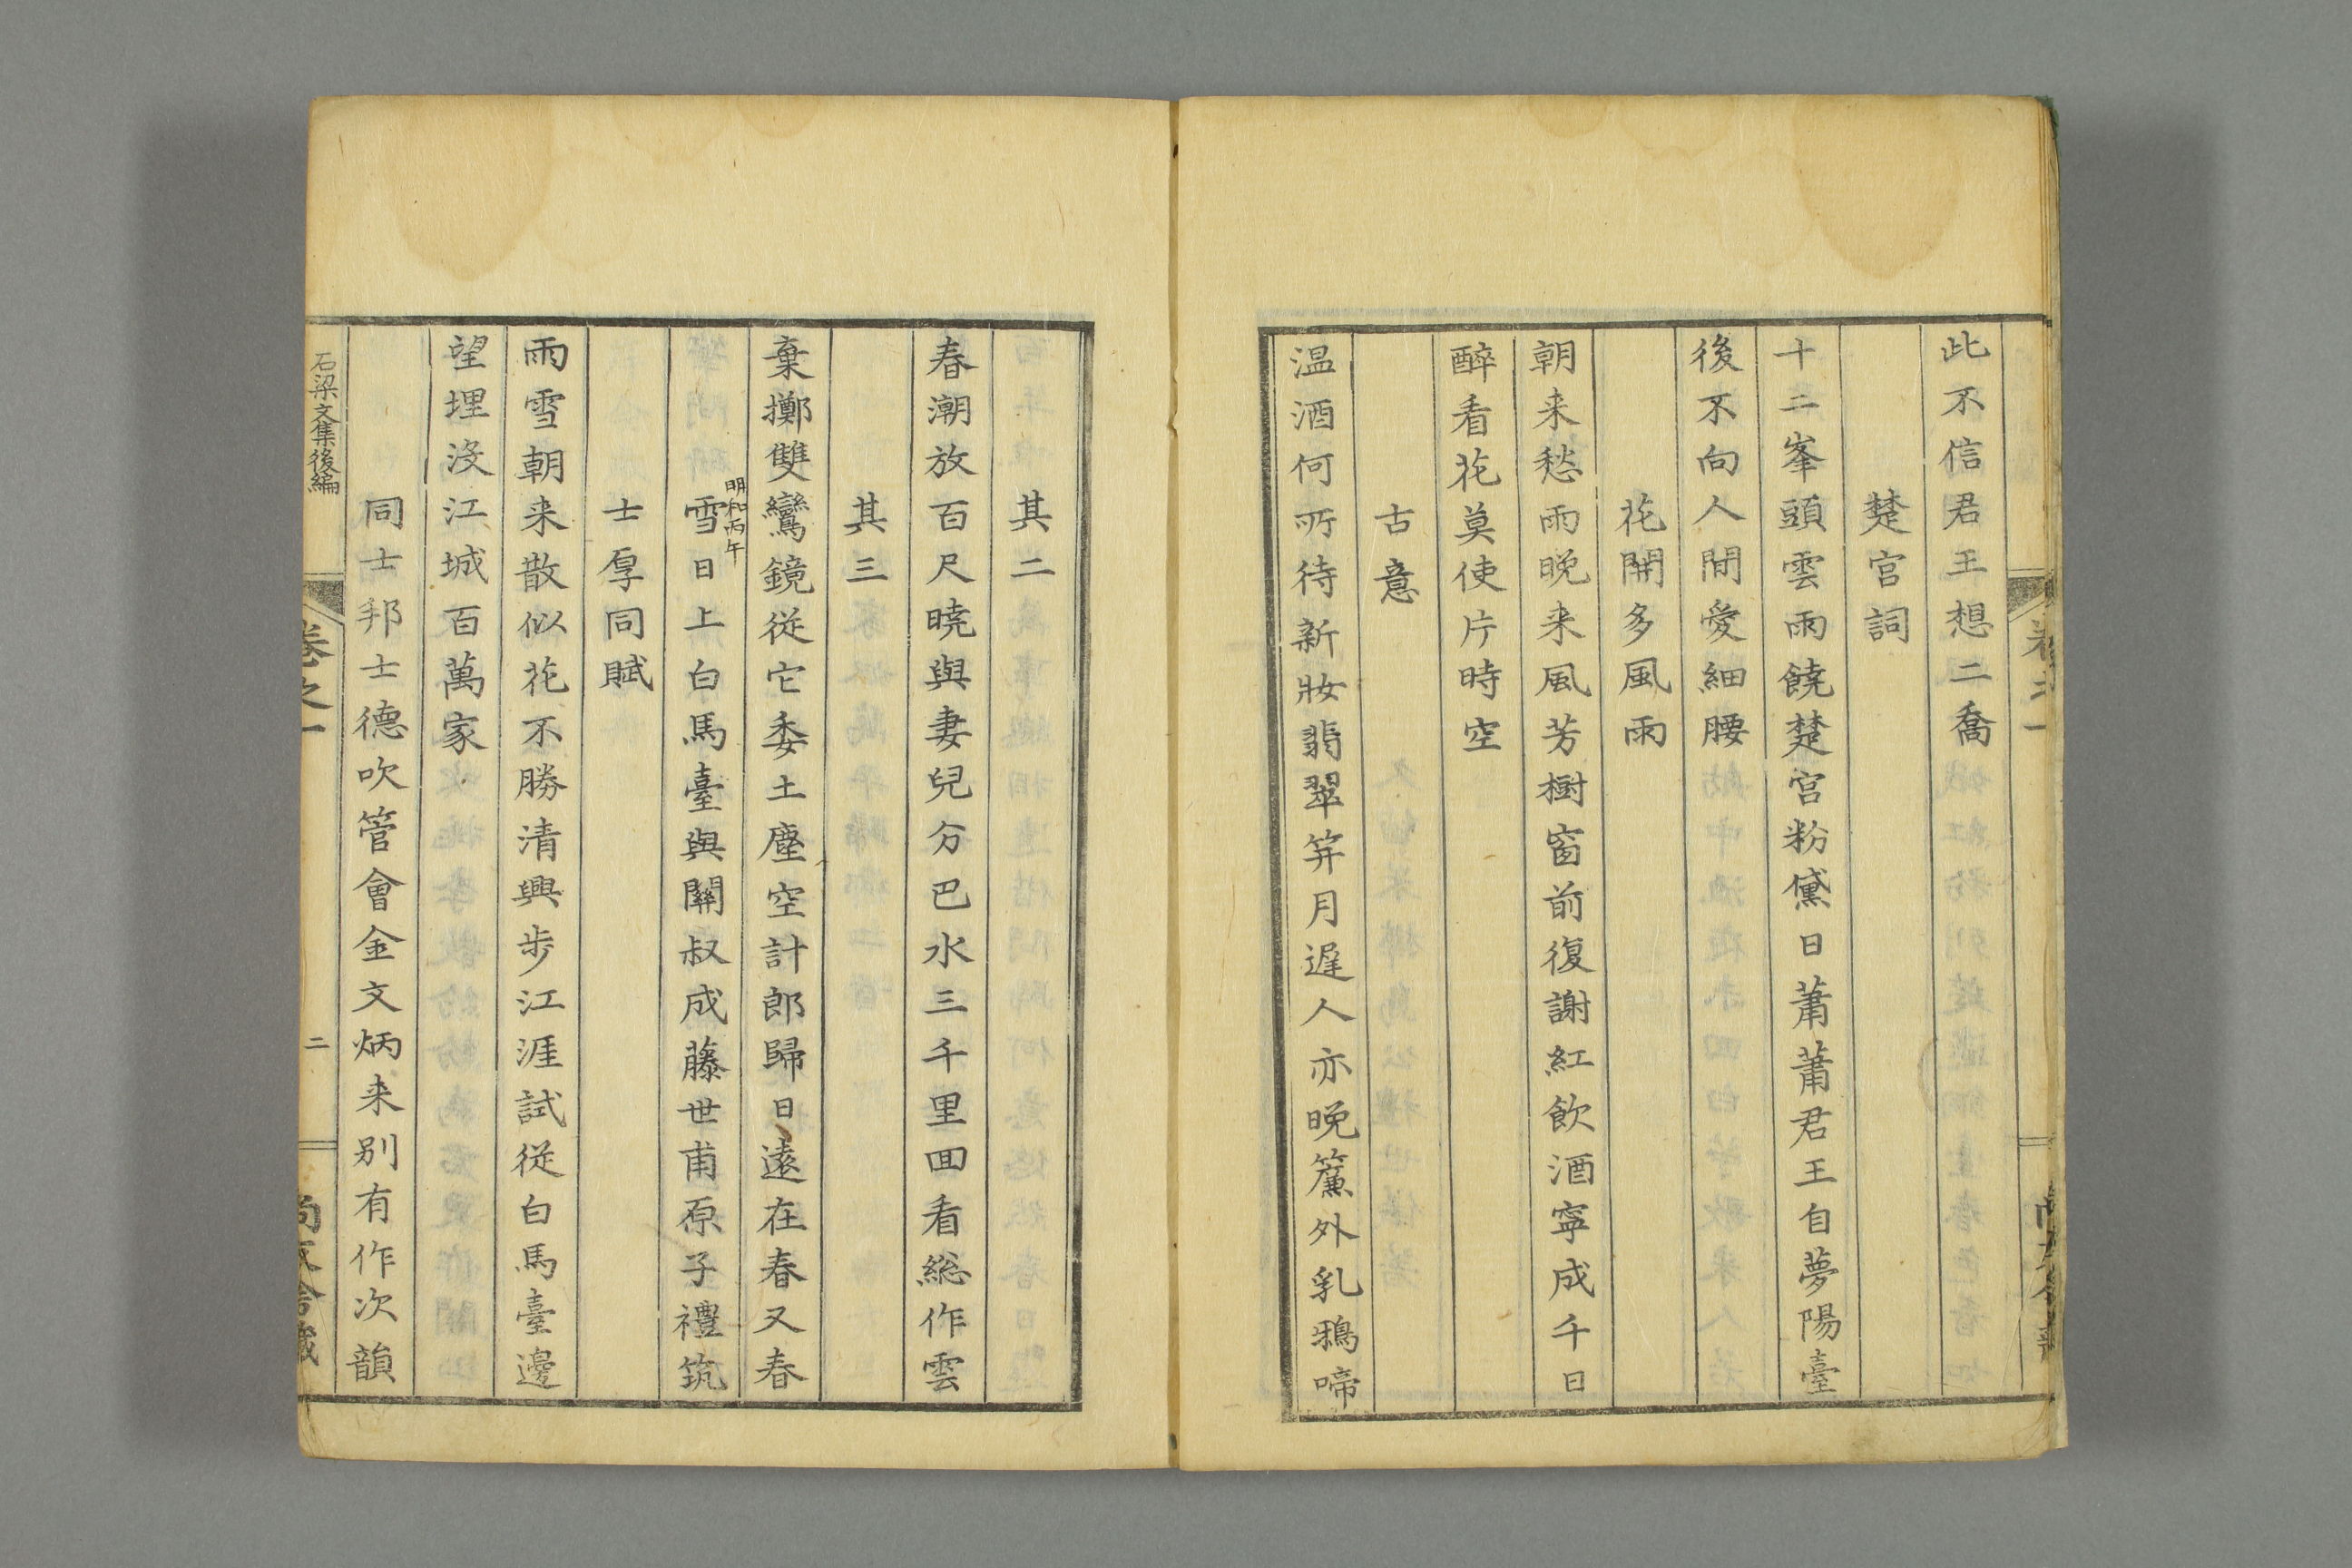 此不信君王想二喬
楚宮詞
十二峯頭雲雨饒楚宮粉黛日蕭蕭君王自夢陽臺
後不向人間愛細腰
花開多風雨
朝来愁雨晚来風芳樹窗前復謝紅飲酒寧成千日
醉看花莫使片時空
古意
温酒何所待新妝翡翠笄月遲人亦晚簾外乳鴉啼
其二
春潮放百尺曉與妻兒分巴水三千里囬看総作雲
其三
棄擲雙鸞鏡從它委土塵空計郎歸日遠在春又春
明和丙午
雪日上白馬臺與關叔成藤世甫原子禮筑
士厚同賦
雨雪朝来散似花不勝清興步江涯試從白馬臺邊
望埋沒江城百萬家
同士邦士德吹管會金文炳来别有作次韻
石梁文集後編
卷之一
二